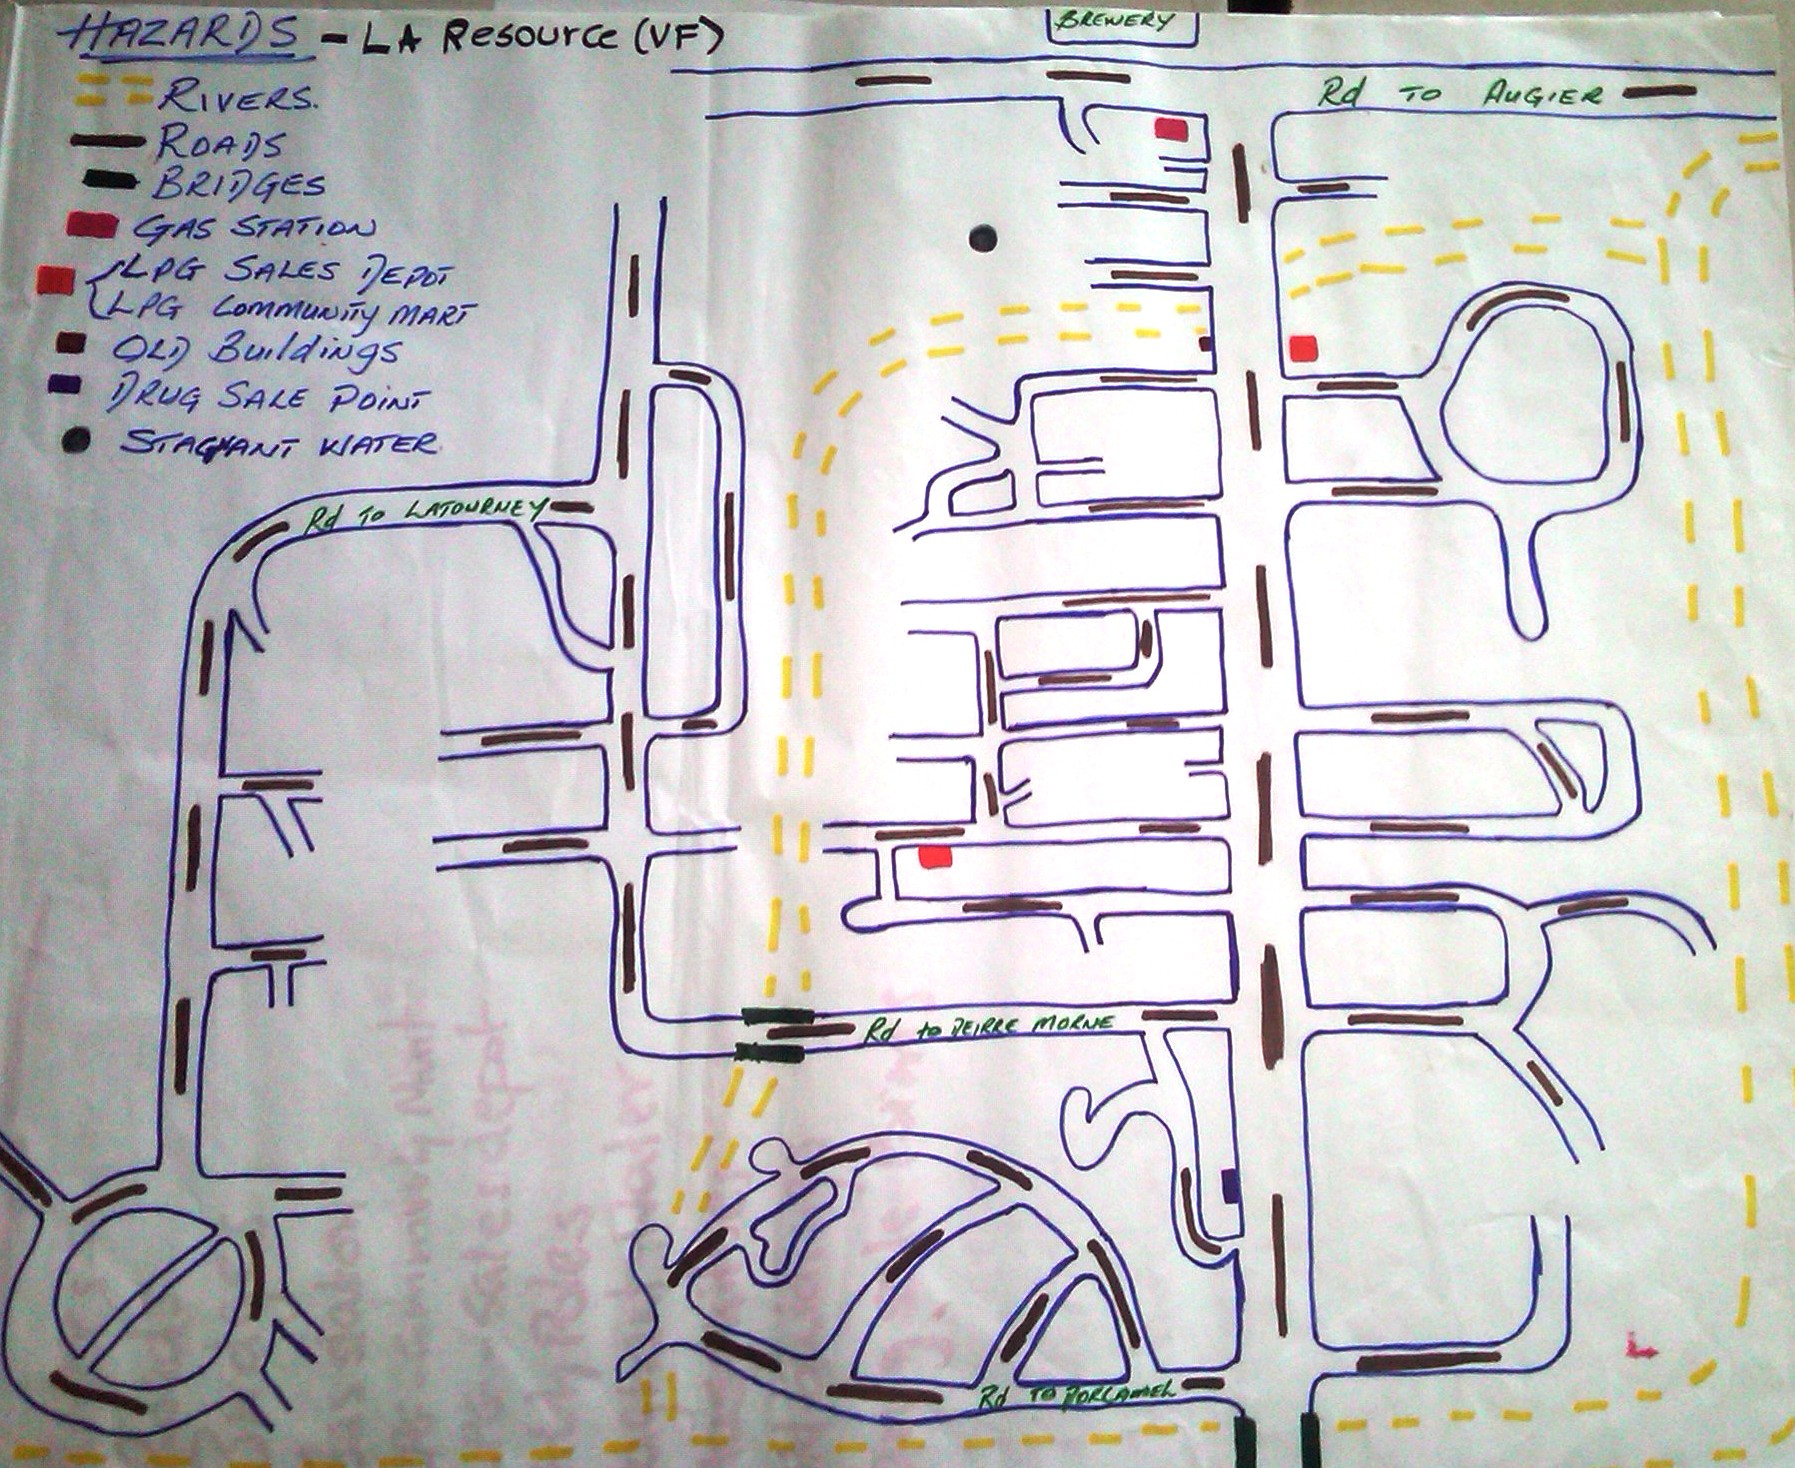 HAZARDS - LA Resource (VF)
RIVERS.
ROADS
BRIDGES
GAS STATION
LPG SALES DEPOT
LPG COMMUNITY MART
OLD Buildings
DRUG SALE POINT
STAGNANT WATER
BREWERY
Rd TO AUGIER
Rd TO LATOURNEY
Rd to DEIRRE MORNE
Rd TO
L